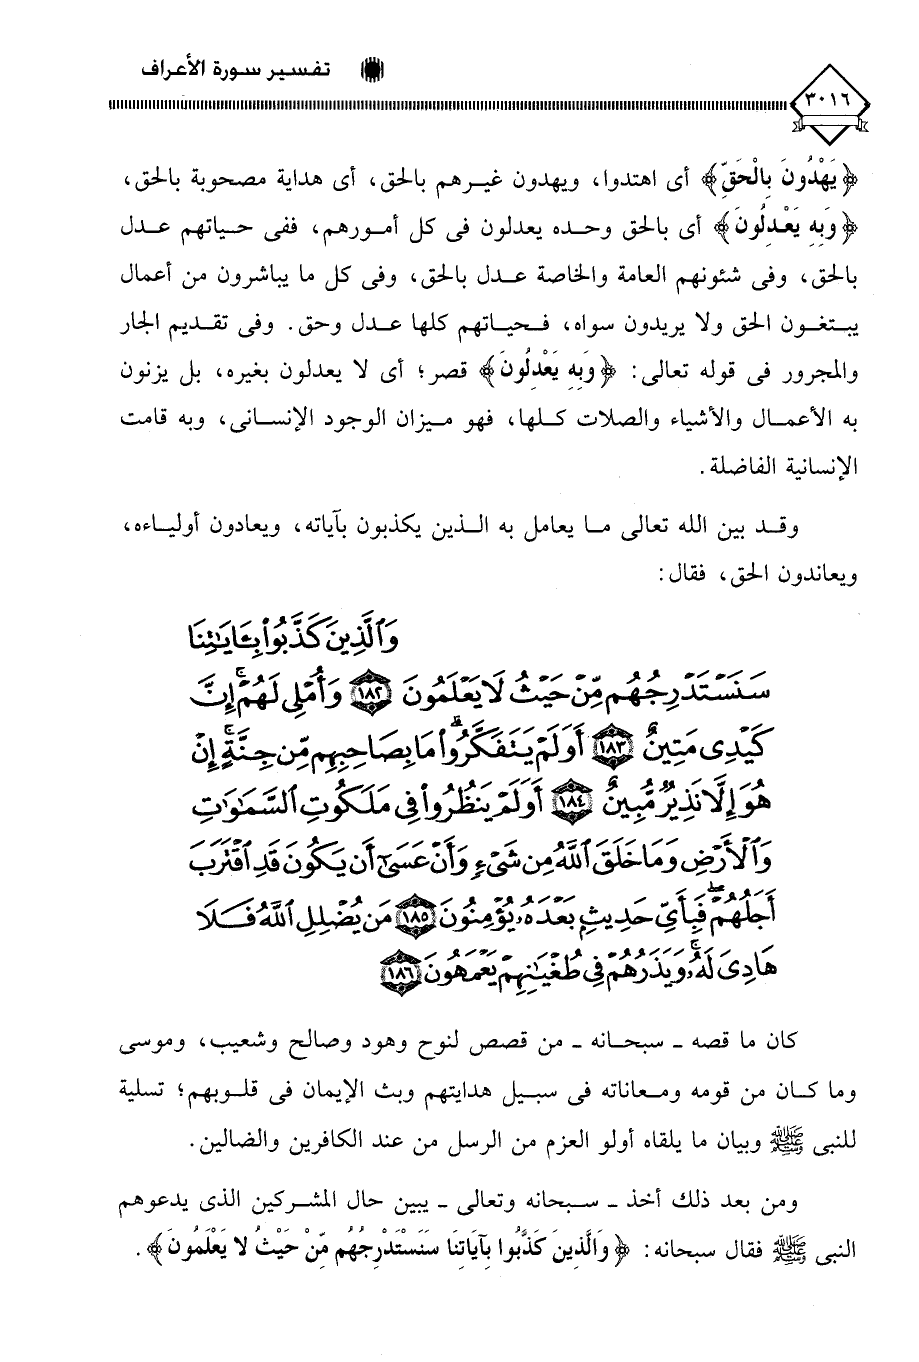 تفسير سورة الأعراف
٣٠١٦
﴿يَهْدُونَ بِالْحَقِّ﴾ أى اهتدوا، ويهدون غيرهم بالحق، أى هداية مصحوبة بالحق،
﴿وَبِهِ يَعْدِلُونَ﴾ أى بالحق وحده يعدلون فى كل أمورهم، ففى حياتهم عدل
بالحق، وفى شئونهم العامة والخاصة عدل بالحق، وفى كل ما يباشرون من أعمال
يبتغون الحق ولا يريدون سواه، فحياتهم كلها عدل وحق. وفى تقديم الجار
والمجرور فى قوله تعالى: ﴿وَبِهِ يَعْدِلُونَ﴾ قصر؛ أى لا يعدلون بغيره، بل يزنون
به الأعمال والأشياء والصلات كلها، فهو ميزان الوجود الإنسانى، وبه قامت
الإنسانية الفاضلة.
وقد بين الله تعالى ما يعامل به الذين يكذبون بآياته، ويعادون أولياءه،
ويعاندون الحق، فقال:
وَٱلَّذِينَ كَذَّبُوا۟ بِـَٔايَٰتِنَا
سَنَسْتَدْرِجُهُم مِّنْ حَيْثُ لَا يَعْلَمُونَ ١٨٢ وَأُمْلِى لَهُمْ ۚ إِنَّ
كَيْدِى مَتِينٌ ١٨٣ أَوَلَمْ يَتَفَكَّرُوا۟ ۗ مَا بِصَاحِبِهِم مِّن جِنَّةٍ ۚ إِنْ
هُوَ إِلَّا نَذِيرٌ مُّبِينٌ ١٨٤ أَوَلَمْ يَنظُرُوا۟ فِى مَلَكُوتِ ٱلسَّمَٰوَٰتِ
وَٱلْأَرْضِ وَمَا خَلَقَ ٱللَّهُ مِن شَىْءٍ وَأَنْ عَسَىٰٓ أَن يَكُونَ قَدِ ٱقْتَرَبَ
أَجَلُهُمْ ۖ فَبِأَىِّ حَدِيثٍۭ بَعْدَهُۥ يُؤْمِنُونَ ١٨٥ مَن يُضْلِلِ ٱللَّهُ فَلَا
هَادِىَ لَهُۥ ۚ وَيَذَرُهُمْ فِى طُغْيَٰنِهِمْ يَعْمَهُونَ ١٨٦
كان ما قصه ـ سبحانه ـ من قصص لنوح وهود وصالح وشعيب، وموسى
وما كان من قومه ومعاناته فى سبيل هدايتهم وبث الإيمان فى قلوبهم؛ تسلية
للنبى ﷺ وبيان ما يلقاه أولو العزم من الرسل من عند الكافرين والضالين.
ومن بعد ذلك أخذ ـ سبحانه وتعالى ـ يبين حال المشركين الذى يدعوهم
النبى ﷺ فقال سبحانه: ﴿وَالَّذِينَ كَذَّبُوا بِآيَاتِنَا سَنَسْتَدْرِجُهُم مِّنْ حَيْثُ لا يَعْلَمُونَ﴾.